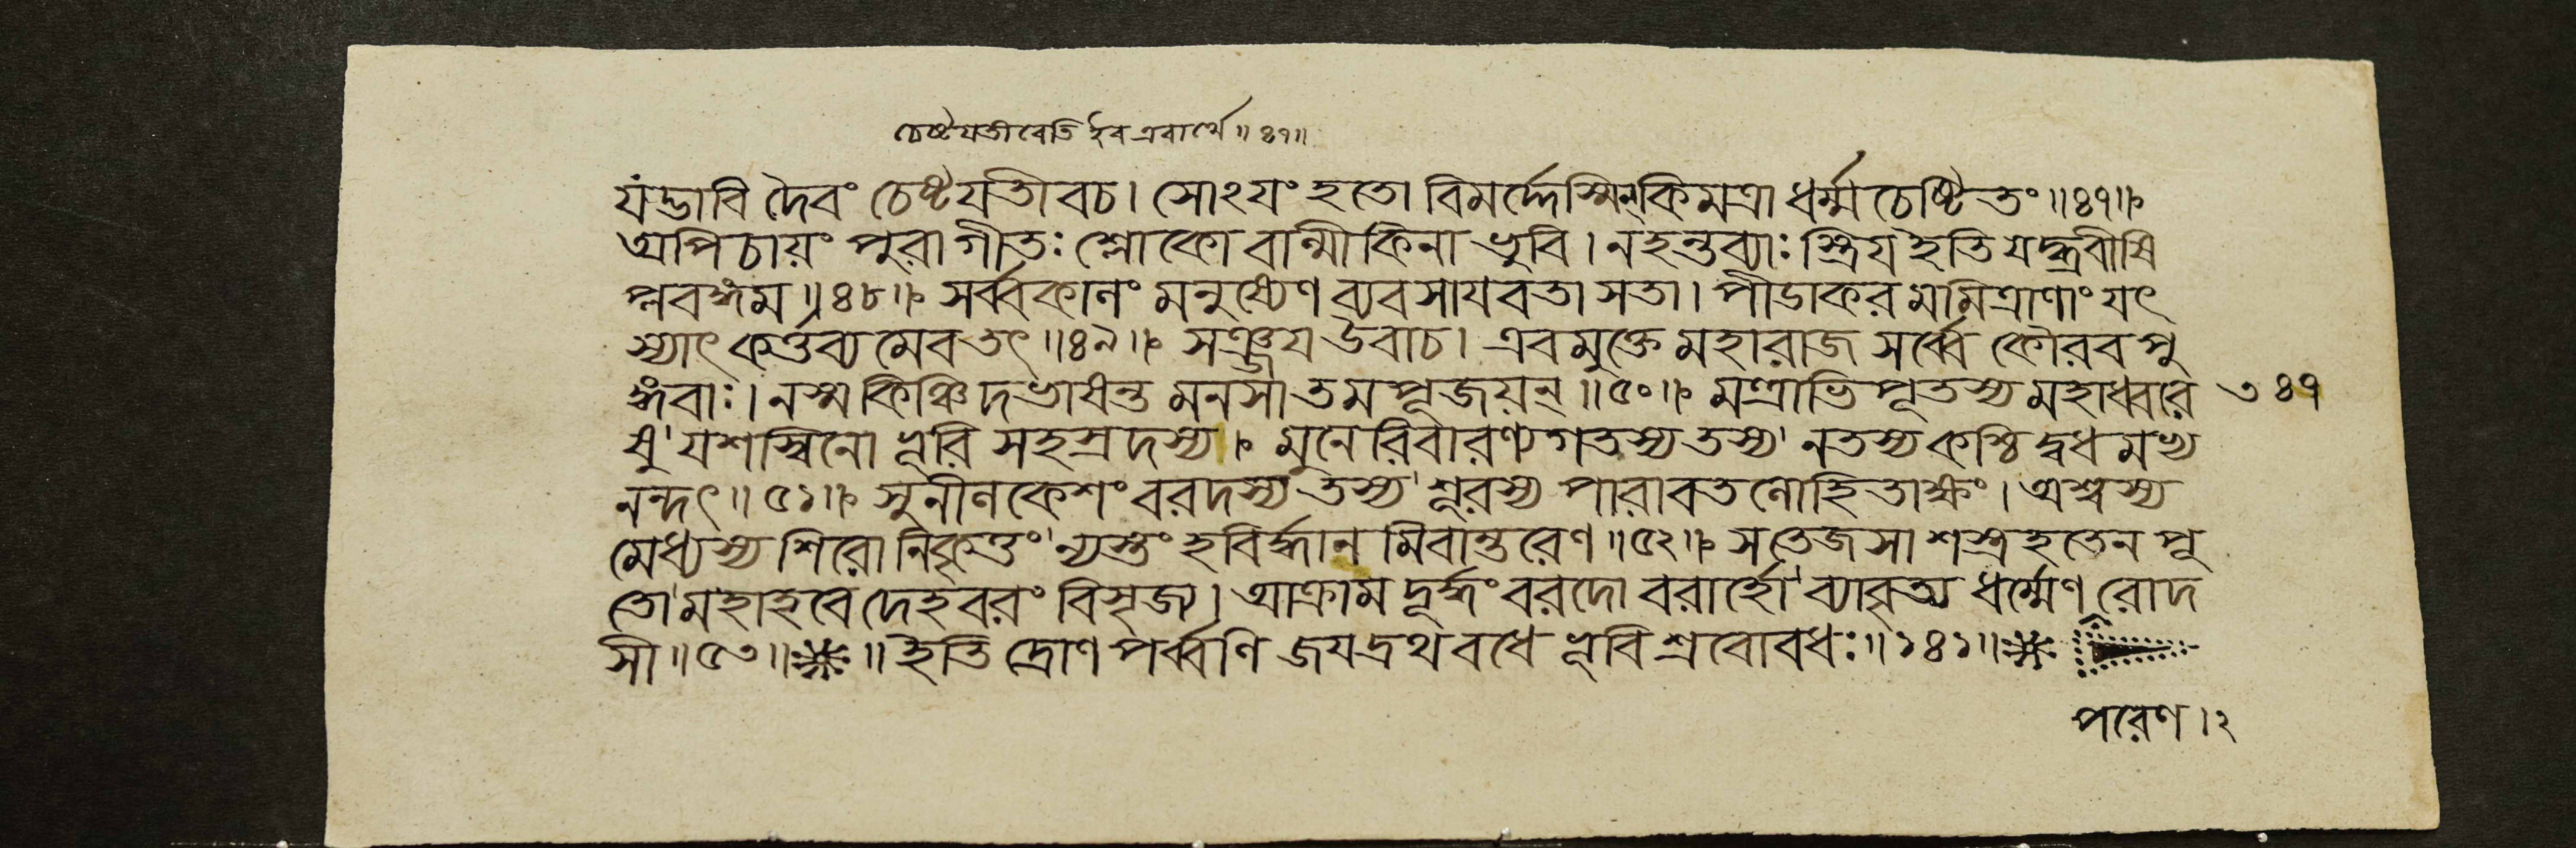 চেষ্টয়তীবেতি ইব এবার্থে॥৪৭॥
যংদ্ভাবি দৈবং চেষ্টয়তীবচ। সোঽয়ং হতো বিমর্দ্দেস্মিন্কিমত্রা ধর্ম্মচেষ্টিতং॥৪৭॥
অপি চায়ং পুরা গীতঃ শ্লোকো বাল্মীকিনা ভুবি। ন হন্তব্যাঃ স্ত্রিয় ইতি যদ্ব্রবীষি
প্লবঙ্গম॥৪৮॥ সর্ব্বকালং মনুষ্যেণ ব্যবসায়বতা সতা। পীডাকরমমিত্রাণাং যৎ
স্যাৎ কর্ত্তব্যমেব তৎ॥৪৯॥ সঞ্জয় উবাচ। এবমুক্তে মহারাজ সর্ব্বে কৌরবপু
ঙ্গবাঃ। ন স্ম কিঞ্চিদভাষন্ত মনসা তমপূজয়ন্॥৫০॥ মন্ত্রাভিপূতস্য মহাধ্বরে ৩৪৭
ষু যশস্বিনো ভূরিসহস্রদস্য। মুনেরিবারণ্যগতস্য তস্য ন তস্য কশ্চিদ্বধমভ্য
নন্দৎ॥৫১॥ সুনীলকেশং বরদস্য তস্য শূরস্য পারাবতলোহিতাক্ষং। অশ্বস্য
মেধ্যস্য শিরো নিকৃত্তং ন্যস্তং হবির্দ্ধানমিবান্তরেণ॥৫২॥ স তেজসা শস্ত্রহতেন পূ
তো মহাহবে দেহবরং বিসৃজ্য। আক্রামদূর্দ্ধং বরদো বরার্হো ব্যাবৃত্য ধর্ম্মেণ রোদ
সী॥৫৩॥ ॥ইতি দ্রোণপর্ব্বণি জয়দ্রথবধে ভূরিশ্রবোবধঃ॥১৪১॥
পরেণ।২